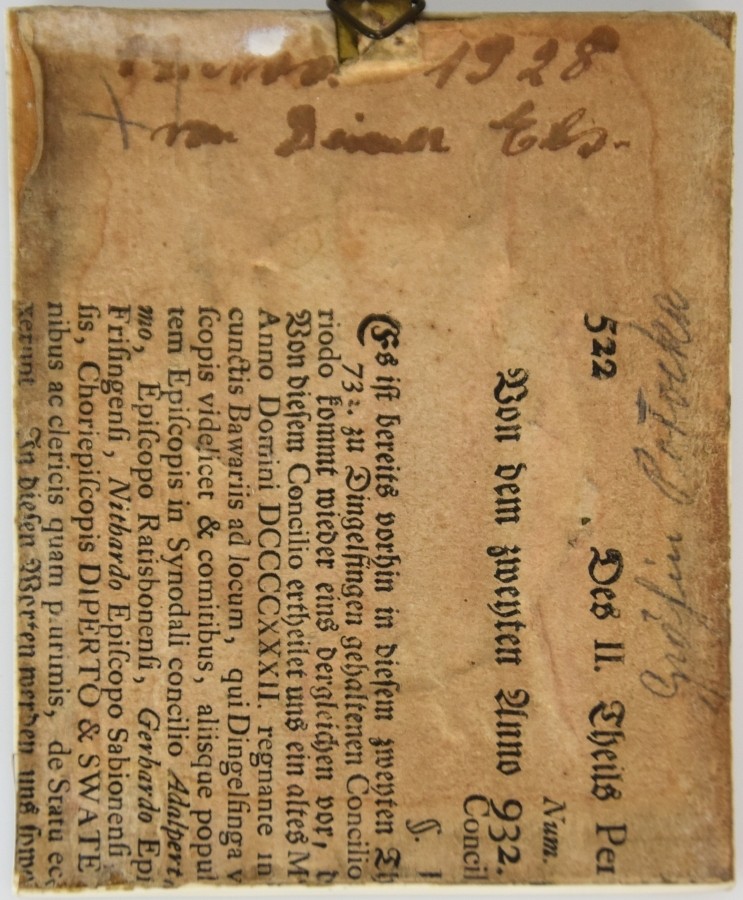 1928
von Elb.
Gräfin Potocka
522 Des II. Theils Per
Num.
Von dem zweyten Anno 932.
Concil
§. I
Es ist bereits vorhin in diesem zweyten Th
732. zu Dingelfingen gehaltenen Concilio
riodo kommt wieder eins dergleichen vor, d
Von diesem Concilio ertheilet uns ein altes M
Anno Domini DCCCCXXXII. regnante in
cunctis Bawariis ad locum, qui Dingelfinga v
ſcopis videlicet & comitibus, aliisque popul
tem Epiſcopis in Synodali concilio Adalpert
mo, Epiſcopo Ratisbonenſi, Gerhardo Epi
Friſingenſi, Nithardo Epiſcopo Sabionenſi
ſis, Choriepiſcopis DIPERTO & SWATE
nibus ac clericis quam plurimis, de Statu ec
xerunt In diesen Worten werden uns